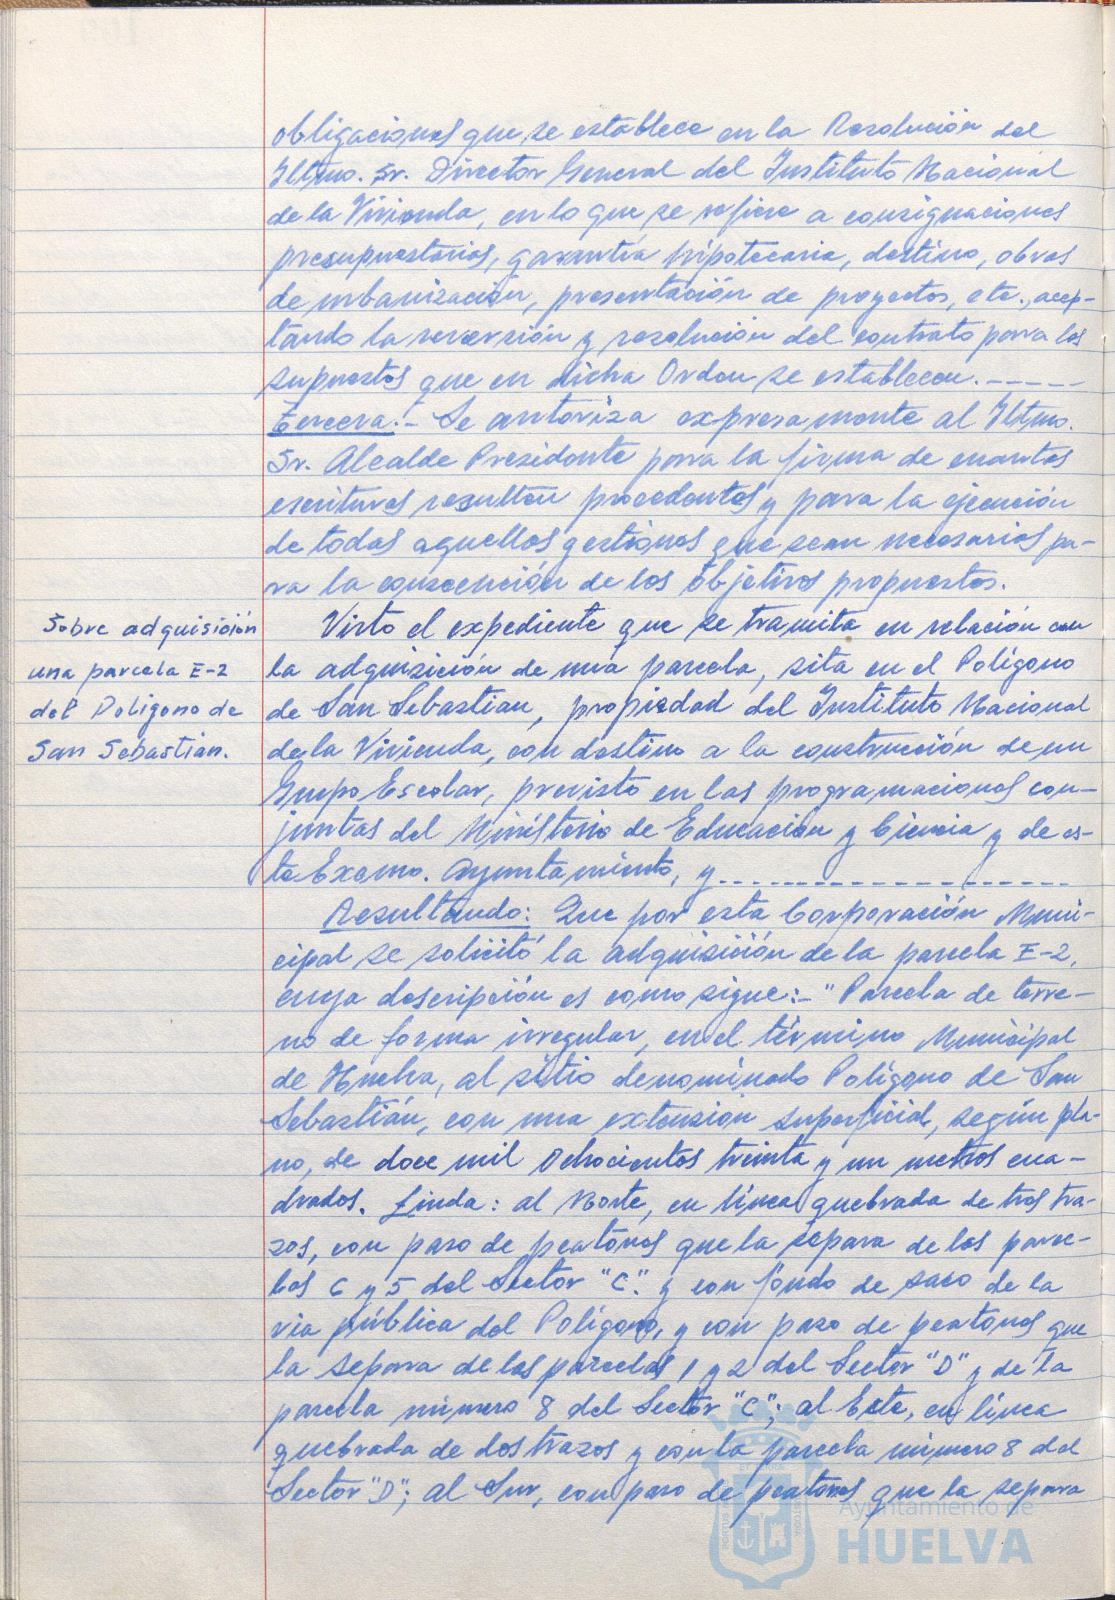 obligaciones que se establece en la Resolución del
Iltmo. Sr. Director General del Instituto Nacional
de la Vivienda, en lo que se refiere a consignaciones
presupuestarias, garantía hipotecaria, destino, obras
de urbanización, presentación de proyectos, etc., acep-
tando la reversión y resolución del contrato para los
supuestos que en dicha Orden se establecen.-----
Tercera:- Se autoriza expresamente al Iltmo.
Sr. Alcalde Presidente para la firma de cuantas
escrituras resulten procedentes y para la ejecución
de todas aquellas gestiones que sean necesarias pa-
ra la consecución de los objetivos propuestos.
Sobre adquisición
una parcela E-2
del Polígono de
San Sebastián.
Visto el expediente que se tramita en relación con
la adquisición de una parcela, sita en el Polígono
de San Sebastian, propiedad del Instituto Nacional
de la Vivienda, con destino a la construcción de un
Grupo Escolar, previsto en las programaciones con-
juntas del Ministerio de Educación y Ciencia y de es-
te Excmo. Ayuntamiento, y--------------------
Resultando: Que por esta Corporación Muni-
cipal se solicitó la adquisición de la parcela E-2,
cuya descripción es como sigue:- "Parcela de terre-
no de forma irregular, en el término Municipal
de Huelva, al sitio denominado Polígono de San
Sebastián, con una extensión superficial, según pla-
no, de doce mil ochocientos treinta y un metros cua-
drados. Linda: al Norte, en línea quebrada de tres tra-
zos, con paso de peatones que la separa de las parce-
las 6 y 5 del Sector "C". y con fondo de saco de la
via pública del Polígono, y con paso de peatones que
la separa de las parcelas 1 y 2 del Sector "D" y de la
parcela número 8 del Sector "C"; al Este, en línea
quebrada de dos trazos y con la parcela número 8 del
Sector "D"; al Sur, con paso de peatones que la separa
Ayuntamiento de
HUELVA